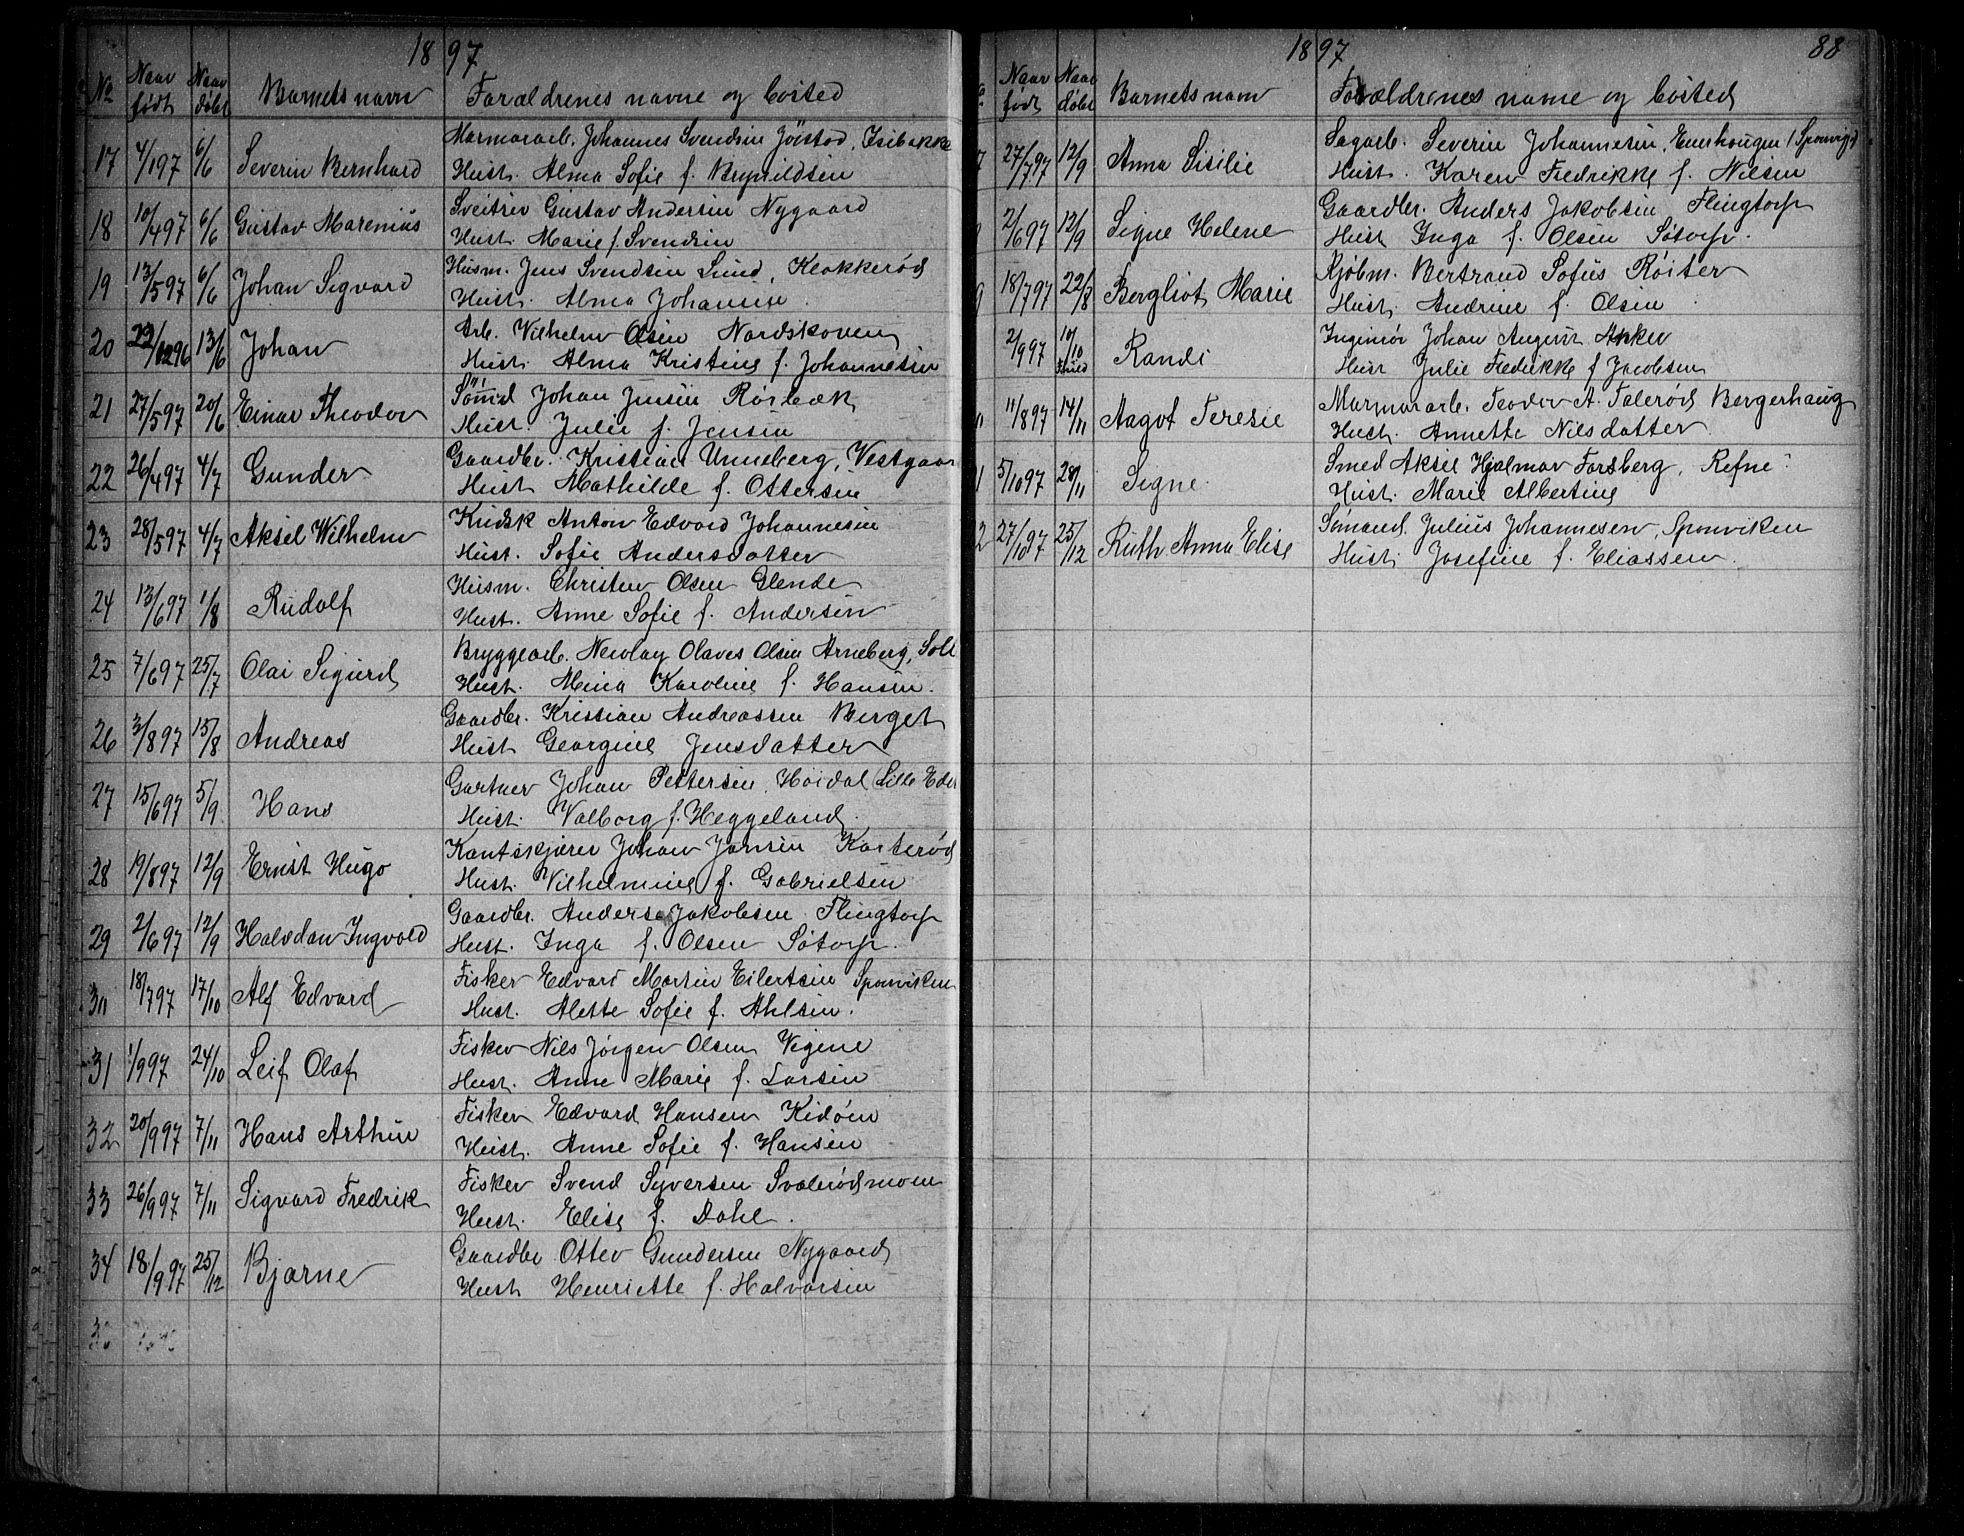 18 97
No Naar født Naar døbt Barnets navn Forældrenes navne og bosted
17 4/1 97 6/6 Severin Bernhard Marmorarb. Johannes Svendsen Jøistad, Isebakke
Hust. Alma Sofie f. Brynildsen
18 10/4 97 6/6 Gustav Marenius Sveitser Gustav Andersen Nygaard
Hust. Marie f. Svendsen
19 13/5 97 6/6 Johan Sigvard Husm. Jens Svendsen Lund, Klokkerød
Hust. Alma Johanne
20 29/12 96 13/6 Johan Arb. Vilhelm Olsen Nordskoven
Hust. Alma Kristine f. Johannesen
21 27/5 97 20/6 Einar Theodor Sømd Johan Jensen Rørbæk
Hust. Julie f. Jensen
22 26/4 97 4/7 Gunder Gaardbr. Kristian Unneberg, Vestgaar
Hust. Mathilde f. Ottersen
23 28/5 97 4/7 Aksel Wilhelm Kudsk Anton Edvard Johannesen
Hust. Sofie Andersdatter
24 13/6 97 1/8 Rudolf Husm. Christen Olsen Glende
Hust. Anne Sofie f. Andersen
25 7/6 97 25/7 Olai Sigurd Bryggearb. Olaves Olsen Arneberg,
Hust. Mina Karoline f. Hansen.
26 3/8 97 15/8 Andreas Gaardbr. Kristian Andreassen Berget
Hust. Georgine Jensdatter
27 15/6 97 5/9 Hans Gartner Johan Pettersen, Høidal (Lille Eder
Hust. Valborg f. Heggeland.
28 19/8 97 12/9 Ernst Hugo Kantskjærer Johan Jansen Karterød
Hust. Vilhelmine f. Gabrielsen
29 2/6 97 12/9 Halvdan Ingvald Gaardbr. Anders Jakobsen Flingtorp
Hust. Inga f. Olsen Søtorp.
30 18/7 97 17/10 Alf Edvard Fisker Edvard Martin Eilertsen Sponviken
Hust. Alette Sofie f. Ahlsen.
31 1/9 97 24/10 Leif Olaf Fisker Nils Jørgen Olsen Vigene
Hust. Anne Marie f. Larsen
32 20/9 97 7/11 Hans Arthur Fisker Edvard Hansen Kidøen
Hust. Anne Sofie f. Hansen
33 26/9 97 7/11 Sigvard Fredrik Fisker Svend Syversen Svalerødmoen
Hust. Elise f. Dahl.
34 18/9 97 25/12 Bjarne Gaardbr Otter Gundersen Nygaard
Hust. Henriette f. Halvorsen
18 97 88
Naar født Naar døbt Barnets navn Forældrenes navne og bosted
7 27/7 97 12/9 Anna Sisilie Sagarb. Severin Johannesen, Enerhougen (Sponvig)
Hust. Karen Fredrikke f. Nilsen
2/6 97 12/9 Signe Helene Gaardbr. Anders Jakobsen Flingtorp
Hust. Inga f. Olsen Søtorp.
9 18/7 97 22/8 Bergliot Marie Kjøbm. Bertrand Sofus Røiter
Hust. Andrine f. Olsen
2/9 97 10/10 Randi Ingeniør Johan August Anker
Hust Julie Fredrikke f Jacobsen
11/8 97 14/11 Aagot Teresie Marmorarb. Teodor A. Falerød Bergerhaug
Hust. Annette Nilsdatter
1 5/10 97 28/11 Signe. Smed Aksel Hjalmar Forsberg, Refne
Hust. Marie Albertine
2 27/10 97 25/12 Ruth Anna Elise Sømand. Julius Johannesen, Sponviken
Hust. Josefine f. Eliassen.